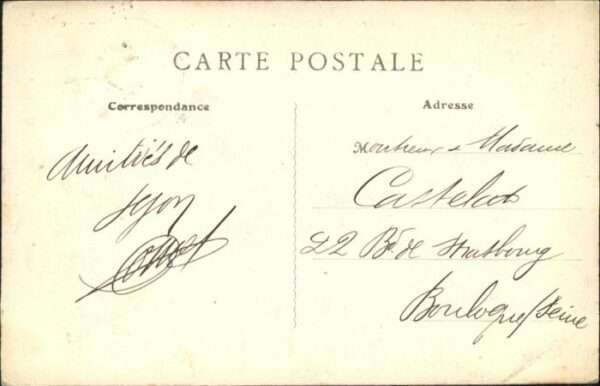 CARTE POSTALE
Correspondance
Adresse
Amitiés de
Lyon
Monsieur & Madame
Castelot
22 Bd. de Strasbourg
Boulogne/Seine